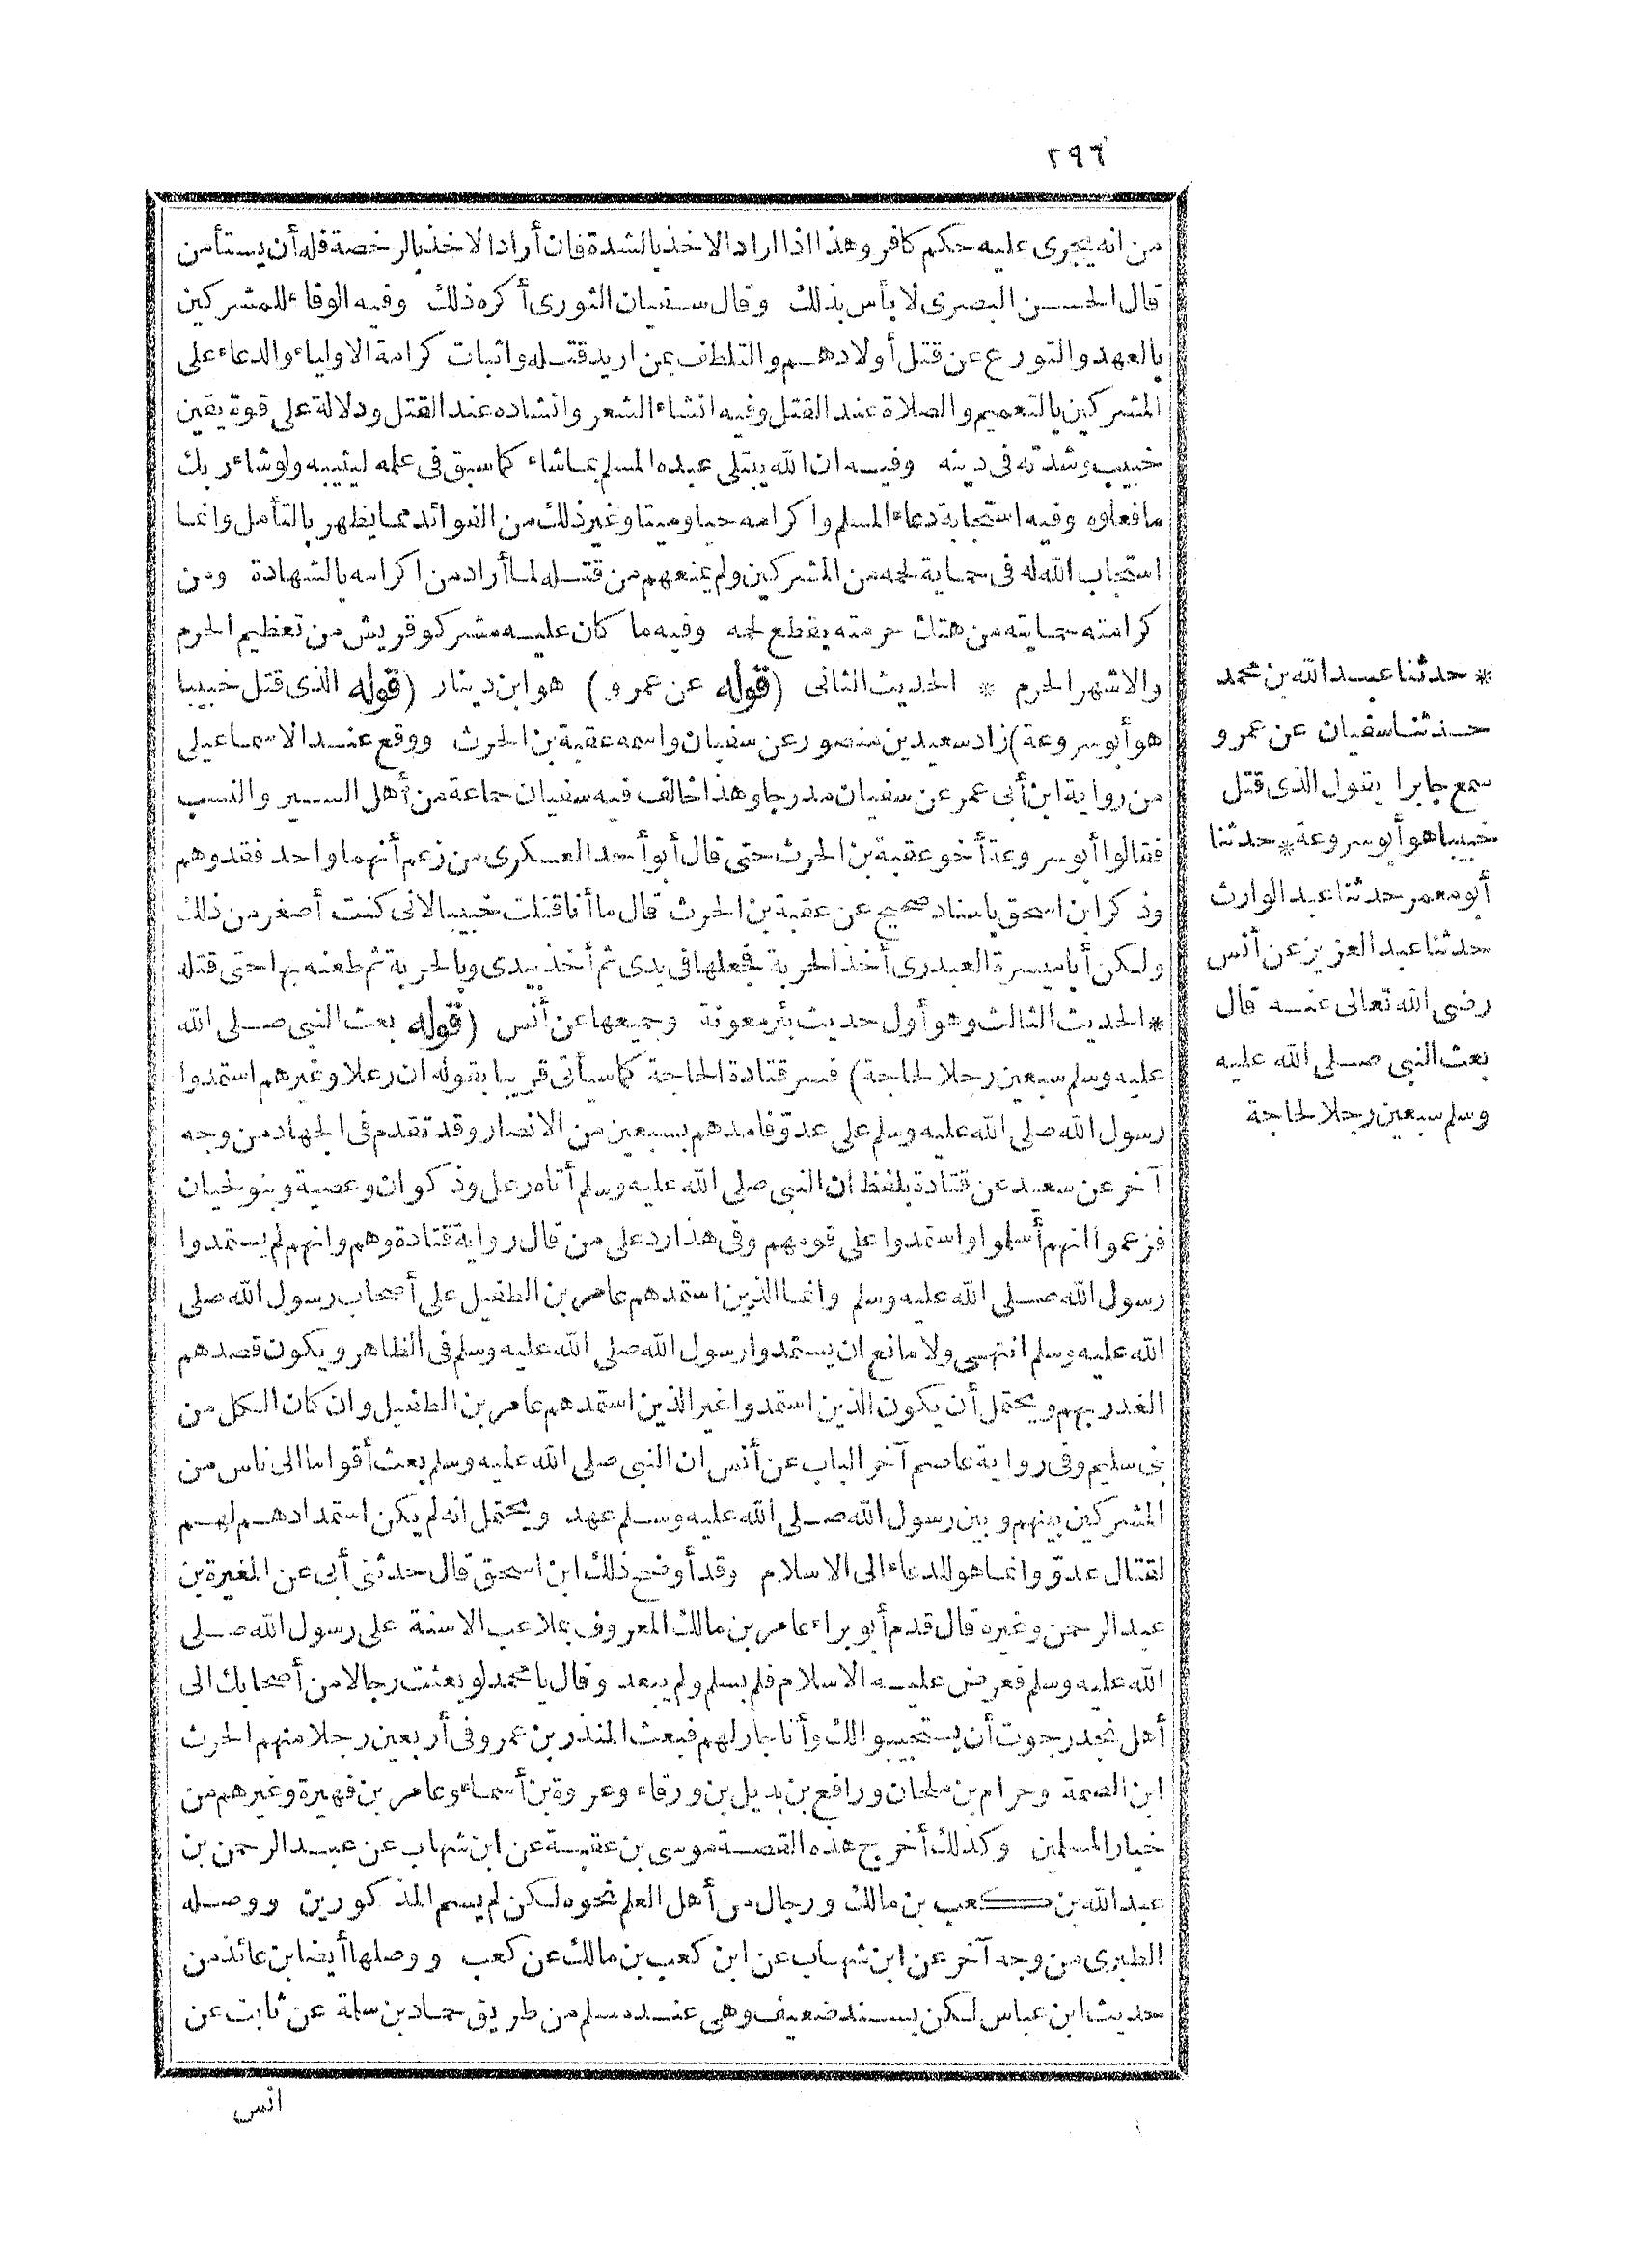 ٢٩٦
من انه يجرى عليه حكم كافر وهذا اذا اراد الاخذ بالشدة فان أراد الاخذ بالرخصة فله أن يستأمن
قال الحسن البصرى لا بأس بذلك وقال سفيان الثورى أكره ذلك وفيه الوفاء للمشركين
بالعهد والتورع عن قتل أولادهم والتلطف بمن اريد قتله واثبات كرامة الاولياء والدعاء على
المشركين بالتعميم والصلاة عند القتل وفيه انشاء الشعر وانشاده عند القتل ودلالة على قوة يقين
خبيب وشدته فى دينه وفيه ان الله يبتلى عبده المسلم بما شاء كما سبق فى علمه ليثيبه ولو شاء ربك
ما فعلوه وفيه استجابة دعاء المسلم واكرامه حيا وميتا وغير ذلك من الفوائد مما يظهر بالتأمل وانما
استجاب الله له فى حماية لحمه من المشركين ولم يمنعهم من قتله لما أراد من اكرامه بالشهادة ومن
كرامته حمايته من هتك حرمته بقطع لحمه وفيه ما كان عليه مشركو قريش من تعظيم الحرم
والاشهر الحرم * الحديث الثانى (قوله عن عمرو) هو ابن دينار (قوله الذى قتل خبيبا
هو أبو سروعة) زاد سعيد بن منصور عن سفيان واسمه عقبة بن الحرث ووقع عند الاسماعيلى
من رواية ابن أبى عمر عن سفيان مدرجا وهذا خالف فيه سفيان جماعة من أهل السير والنسب
فقالوا أبو سروعة أخو عقبة بن الحرث حتى قال أبو أحمد العسكرى من زعم أنهما واحد فقد وهم
وذكر ابن اسحق باسناد صحيح عن عقبة بن الحرث قال ما أنا قتلت خبيبا لانى كنت أصغر من ذلك
ولكن أبا ميسرة العبدرى أخذ الحربة فجعلها فى يدى ثم أخذ بيدى وبالحربة ثم طعنه بها حتى قتله
* الحديث الثالث وهو أول حديث بئر معونة وجميعها عن أنس (قوله بعث النبى صلى الله
عليه وسلم سبعين رجلا لحاجة) فسر قتادة الحاجة كما سيأتى قريبا بقوله ان رعلا وغيرهم استمدوا
رسول الله صلى الله عليه وسلم على عدوّ فامدهم بسبعين من الانصار وقد تقدم فى الجهاد من وجه
آخر عن سعيد عن قتادة بلفظ ان النبى صلى الله عليه وسلم أتاه رعل وذكوان وعصية وبنو لحيان
فزعموا انهم أسلموا واستمدوا على قومهم وفى هذا رد على من قال رواية قتادة وهم وانهم لم يستمدوا
رسول الله صلى الله عليه وسلم وانما الذين استمدهم عامر بن الطفيل على أصحاب رسول الله صلى
الله عليه وسلم انتهى ولا مانع ان يستمدوا رسول الله صلى الله عليه وسلم فى الظاهر ويكون قصدهم
الغدر بهم ويحتمل أن يكون الذين استمدوا غير الذين استمدهم عامر بن الطفيل وان كان الكل من
بنى سليم وفى رواية عاصم آخر الباب عن أنس ان النبى صلى الله عليه وسلم بعث أقواما الى ناس من
المشركين بينهم وبين رسول الله صلى الله عليه وسلم عهد ويحتمل انه لم يكن استمدادهم لهم
لقتال عدوّ وانما هو للدعاء الى الاسلام وقد أوضح ذلك ابن اسحق قال حدثنى أبى عن المغيرة بن
عبد الرحمن وغيره قال قدم أبو براء عامر بن مالك المعروف بملاعب الاسنة على رسول الله صلى
الله عليه وسلم فعرض عليه الاسلام فلم يسلم ولم يبعد وقال يا محمد لو بعثت رجالا من أصحابك الى
أهل نجد رجوت أن يستجيبوا لك وأنا جار لهم فبعث المنذر بن عمرو فى أربعين رجلا منهم الحرث
ابن الصمة وحرام بن ملحان ورافع بن بديل بن ورقاء وعروة بن أسماء وعامر بن فهيرة وغيرهم من
خيار المسلمين وكذلك أخرج هذه القصة موسى بن عقبة عن ابن شهاب عن عبد الرحمن بن
عبد الله بن كعب بن مالك ورجال من أهل العلم نحوه لكن لم يسم المذكورين ووصله
الطبرى من وجه آخر عن ابن شهاب عن ابن كعب بن مالك عن كعب ووصلها أيضا ابن عائذ من
حديث ابن عباس لكن بسند ضعيف وهى عند مسلم من طريق حماد بن سلمة عن ثابت عن
انس
* حدثنا عبد الله بن محمد
حدثنا سفيان عن عمرو
سمع جابرا يقول الذى قتل
خبيبا هو أبو سروعة * حدثنا
أبو معمر حدثنا عبد الوارث
حدثنا عبد العزيز عن أنس
رضى الله تعالى عنه قال
بعث النبى صلى الله عليه
وسلم سبعين رجلا لحاجة